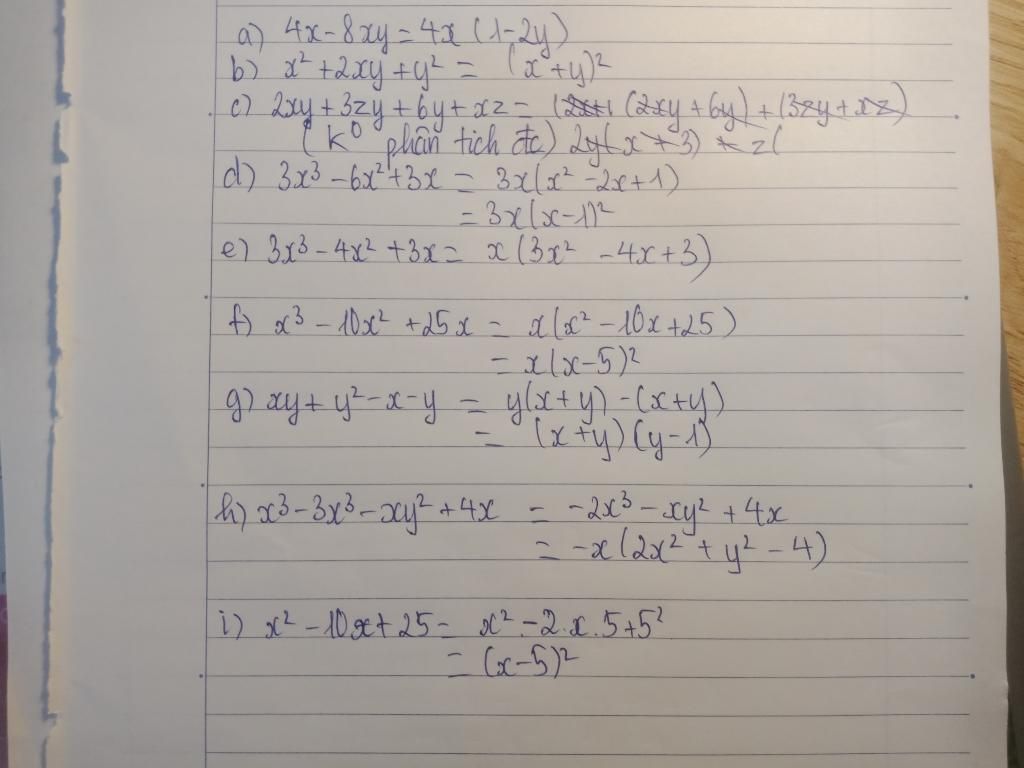 a) 4x - 8xy = 4x (1-2y)
b) x² + 2xy + y² = (x + y)²
c) 2xy + 3zy + 6y + xz = (2x+ (2xy + 6y) + (3zy + xz)
( k⁰ phân tích đc) 2y(x + 3) + z(
d) 3x³ - 6x² + 3x = 3x(x² - 2x + 1)
= 3x(x-1)²
e) 3x³ - 4x² + 3x = x (3x² - 4x + 3)
f) x³ - 10x² + 25x = x(x² - 10x + 25)
= x(x-5)²
g) xy + y² - x - y = y(x + y) - (x + y)
= (x + y) (y - 1)
h) x³ - 3x³ - xy² + 4x = -2x³ - xy² + 4x
= -x (2x² + y² - 4)
i) x² - 10x + 25 = x² - 2.x.5 + 5²
= (x - 5)²